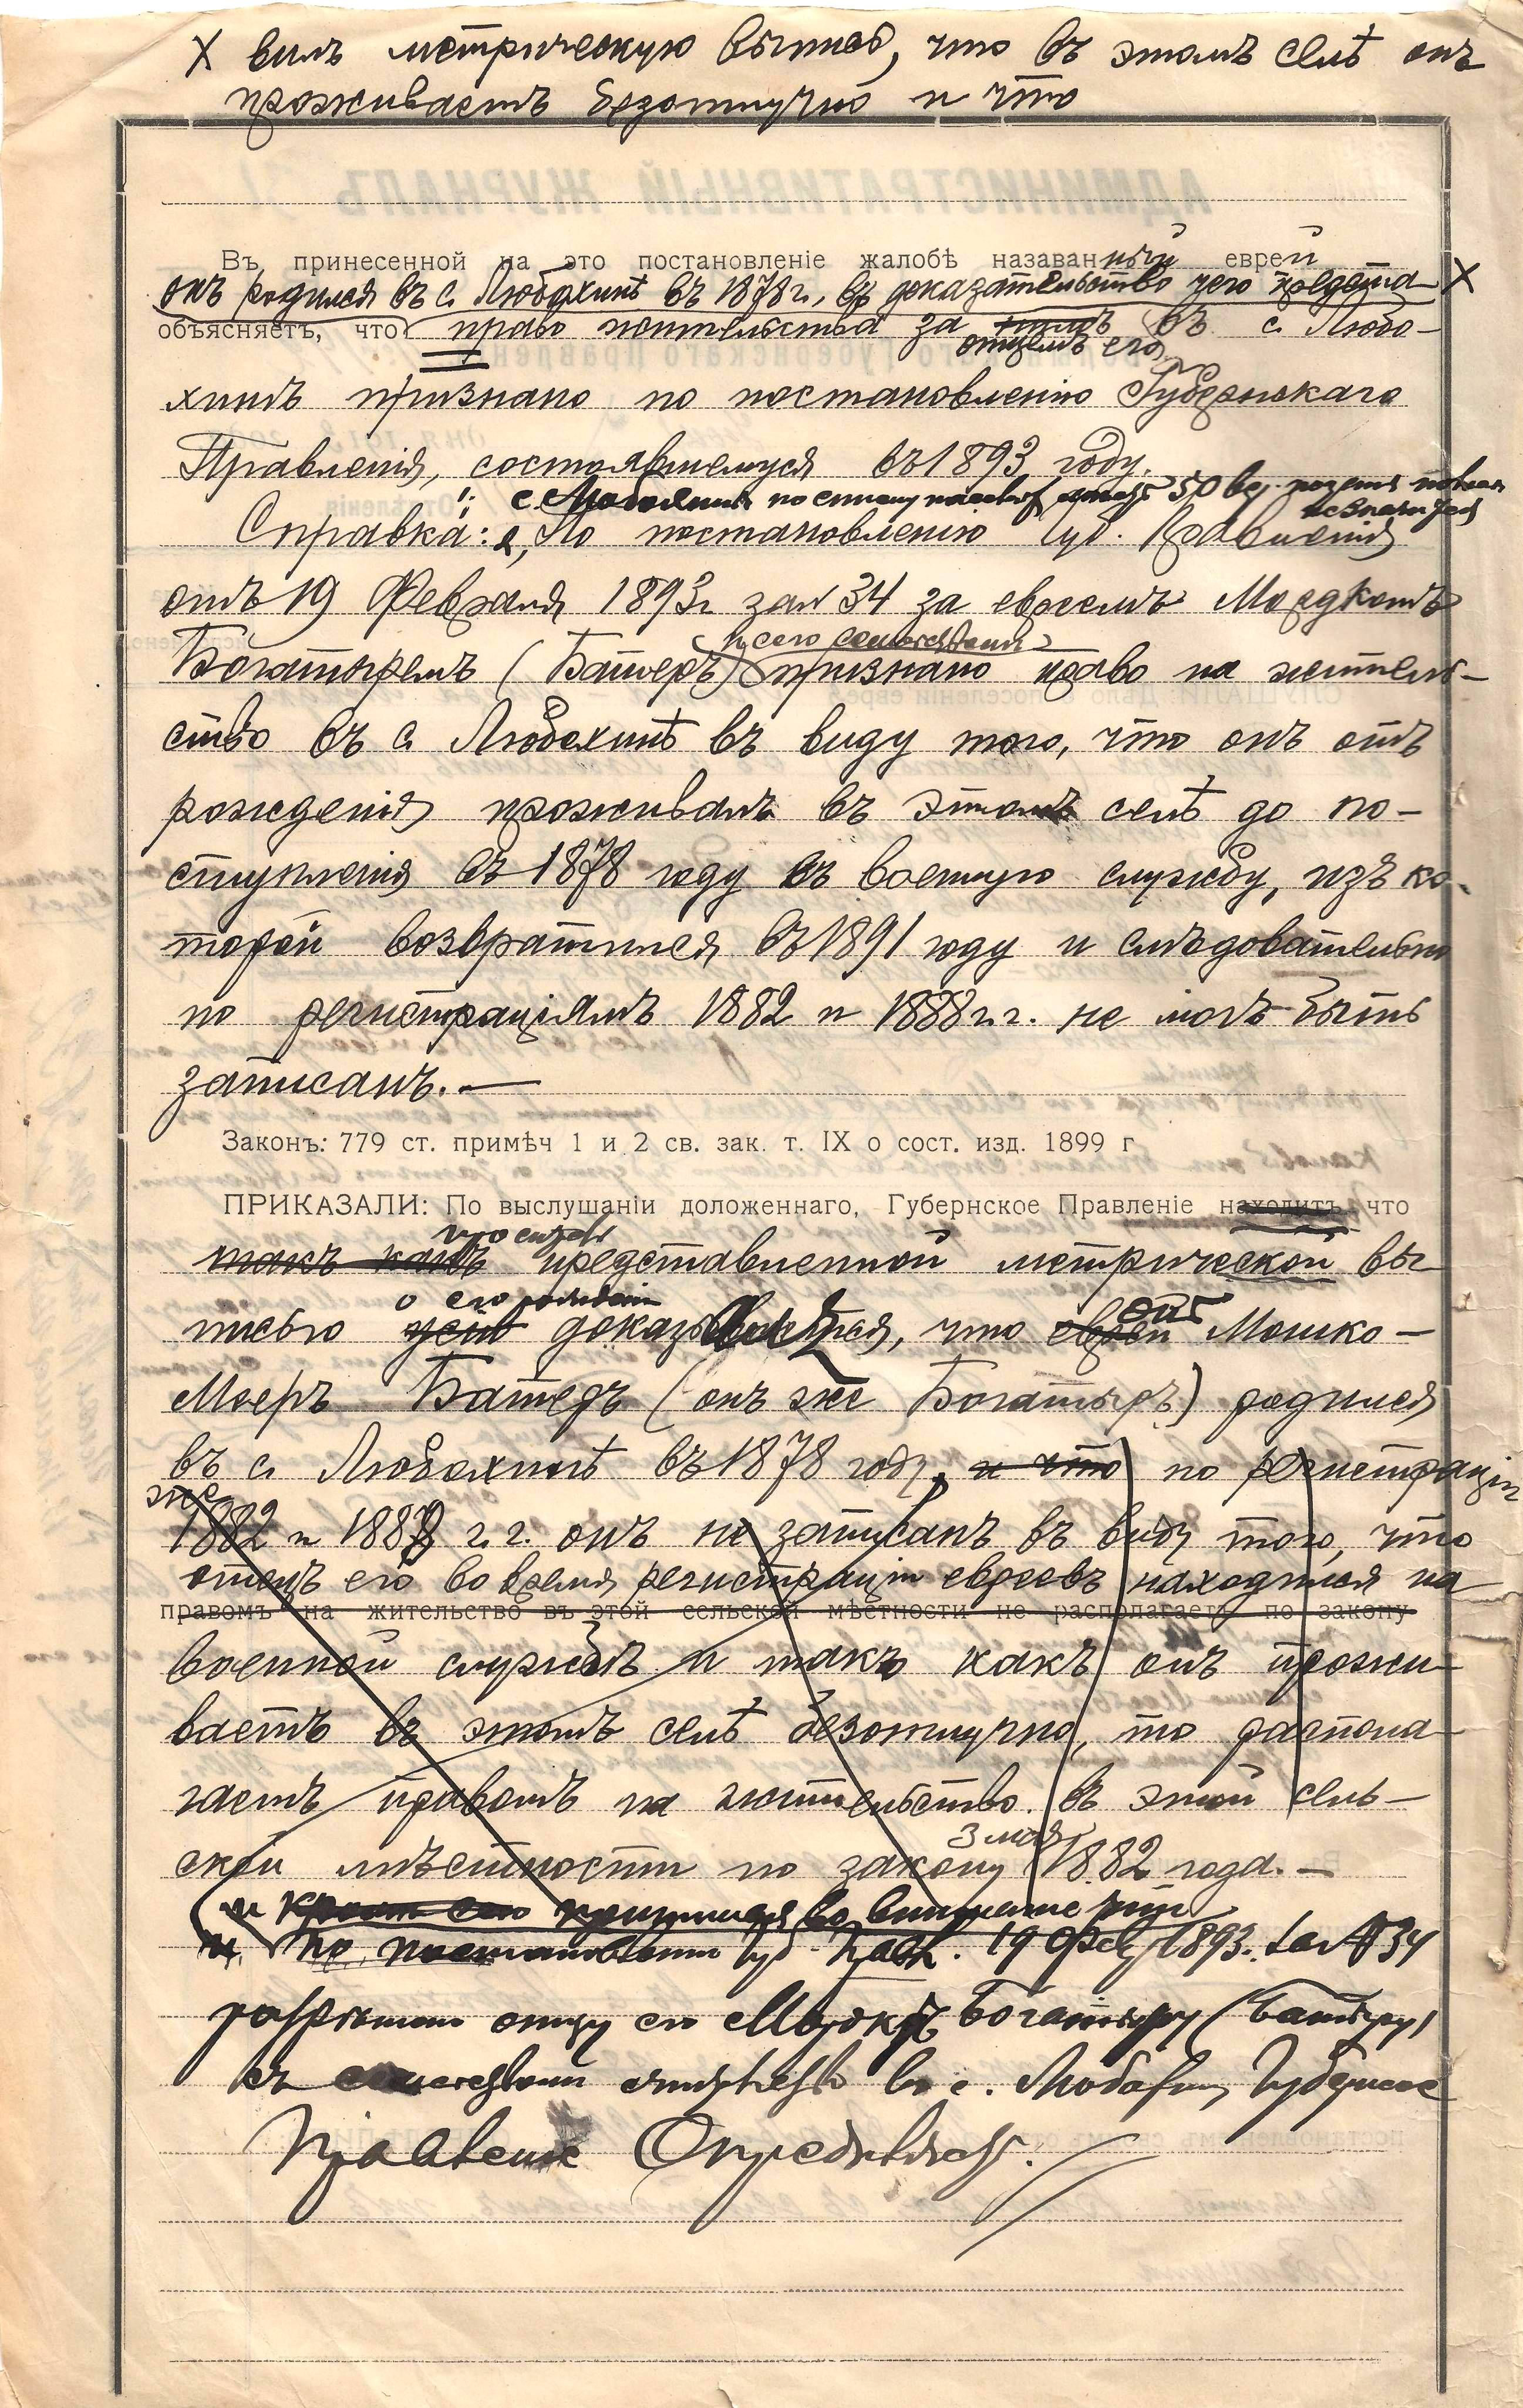 X вилъ метрическую выпись, что въ этомъ селѣ онъ
проживаетъ безотлучно и что
АДМИНИСТРАТИВНЫЙ ЖУРНАЛЪ
Въ принесенной на это постановленіе жалобѣ названный еврей
онъ родился въ с. Любохинѣ въ 1878 г., въ доказательство чего предста- X
объясняетъ, что право жительства за нимъ въ с. Любо-
отцемъ его
хинѣ признано по постановленію Губернскаго
Правленія, состоявшемуся въ 1893 году.
с. Любохинъ по списку
не значится
Справка: 2, По постановленію Губ. Правленія
отъ 19 Февраля 1893 г. за № 34 за евреемъ Мордкомъ
и его семействомъ
Богатыремъ (Батеръ) признано право на житель-
ство въ с. Любохинѣ въ виду того, что онъ отъ
рожденія проживалъ въ этомъ селѣ до по-
ступленія въ 1878 году въ военную службу, изъ ко-
торой возвратился въ 1891 году и слѣдовательно
по регистраціямъ 1882 и 1888 г.г. не могъ быть
записанъ. —
Законъ: 779 ст. примѣч 1 и 2 св. зак. т. IX о сост. изд. 1899 г
ПРИКАЗАЛИ: По выслушаніи доложеннаго, Губернское Правленіе находитъ что
такъ какъ представленной метрической вы-
о его рожденіи
писью доказывается, что еврей онъ Мошко-
Мееръ Батеръ (онъ же Богатырь) родился
въ с. Любохинѣ въ 1878 году, и что по регистраціи
же
1882 и 1888 г.г. онъ не записанъ въ виду того, что
отецъ его во время регистраціи евреевъ находился на
правомъ на жительство въ этой сельской мѣстности не располагаетъ по закону
военной службѣ и такъ какъ онъ прожи-
ваетъ въ этомъ селѣ безотлучно, то распола-
гаетъ правомъ на жительство въ этой сель-
3 мая
ской мѣстности по закону 1882 года. —
и кромѣ сего принимая во вниманіе что
и по постановленію Губ. Правл. 19 Фев. 1893 г. за № 34
разрѣшено отцу его Мордкѣ Богатырю (Батеру)
съ семействомъ жительство въ с. Любохинѣ, Губернское
Правленіе Опредѣляетъ.